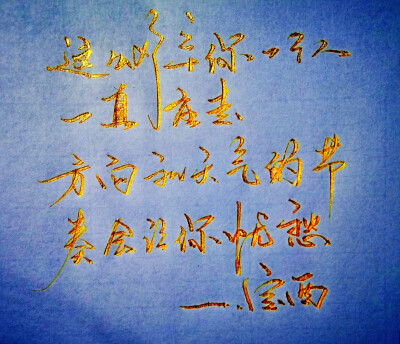 这些年你一个人
一直在走
方向和天气的节
奏会让你忧愁
—定西